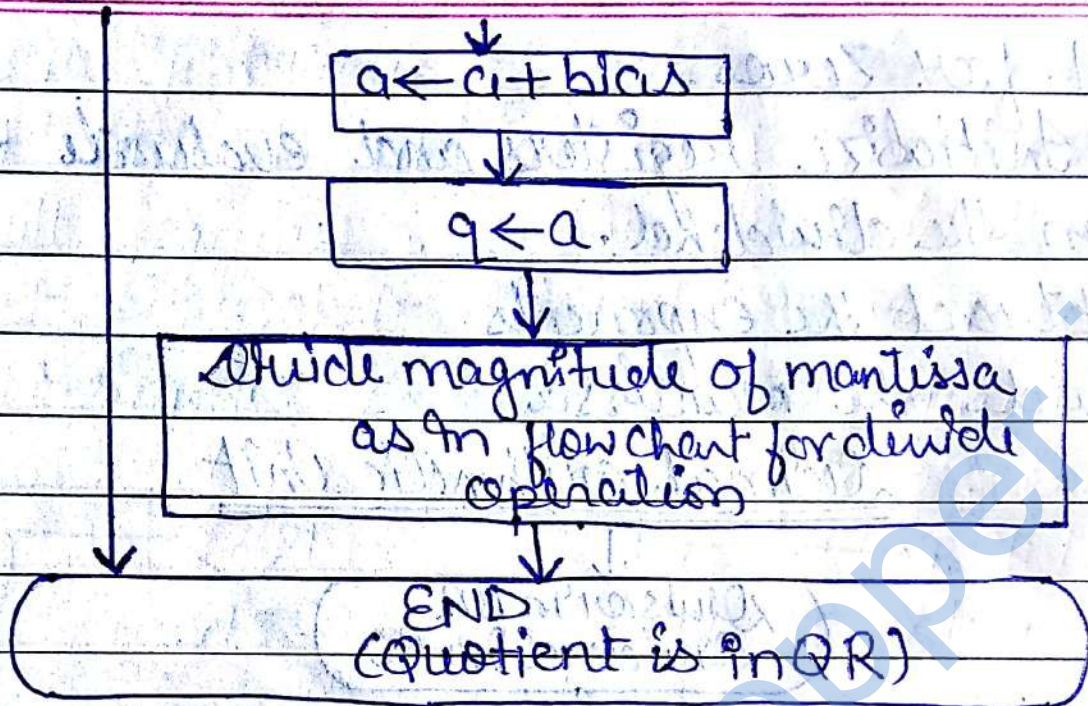 a ← a + bias
q ← a.
Divide magnitude of mantissa
as in flowchart for divide
operation
END
(Quotient is in QR)